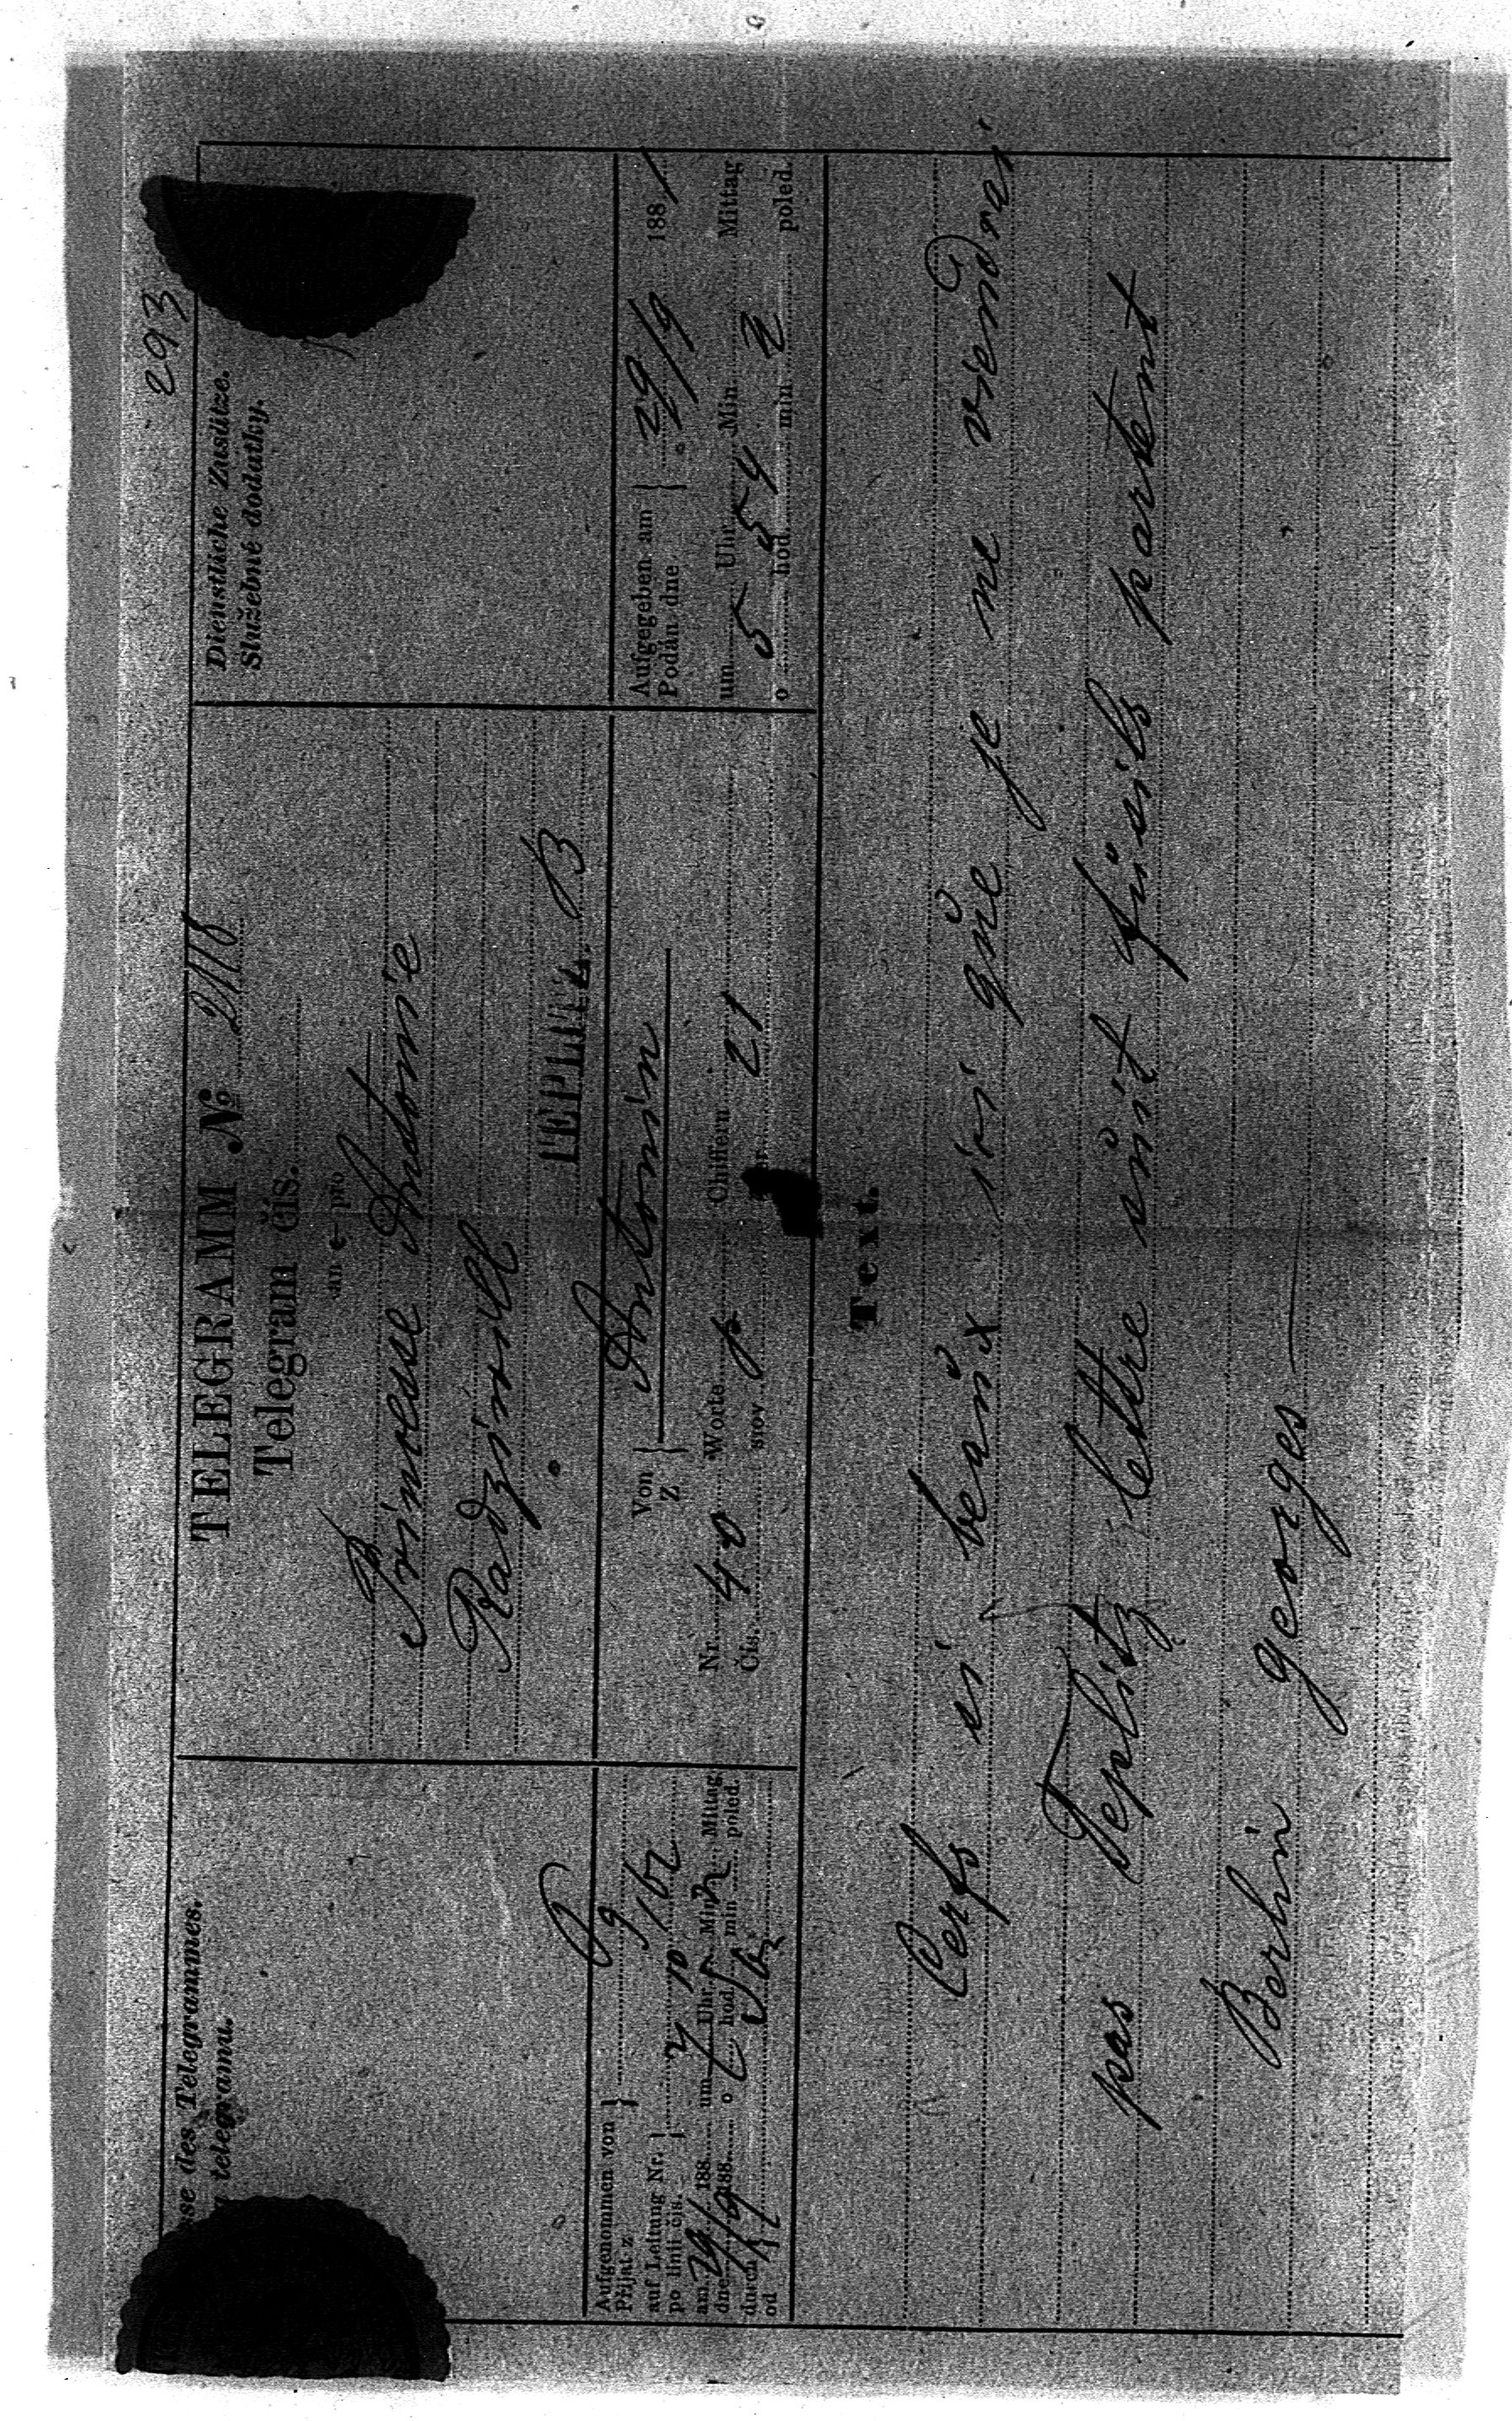 293
se des Telegrammes.
telegramu.
TELEGRAMM № 2118
Telegram čís.
an – pro
Princesse Antonie
Radziwill
TEPLITZ B
Dienstliche Zusätze.
Služebné dodatky.
Aufgenommen von
Přijat z
auf Leitung Nr.
po linii čís.
am 29/9 188 um Uhr Min Mittag
dne 188 o hod. min poled.
durch
od
Von
Z
Antonin
Nr. 40 Worte Chiffern 21
Čís. slov
Aufgegeben am
Podán dne
29/9 1881
um 5 Uhr 54 Min Mittag
o hod. min poled.
Text.
Cerfs si beaux ici que je ne viendrai
pas Teplitz lettre suit fusils partent
Berlin georges